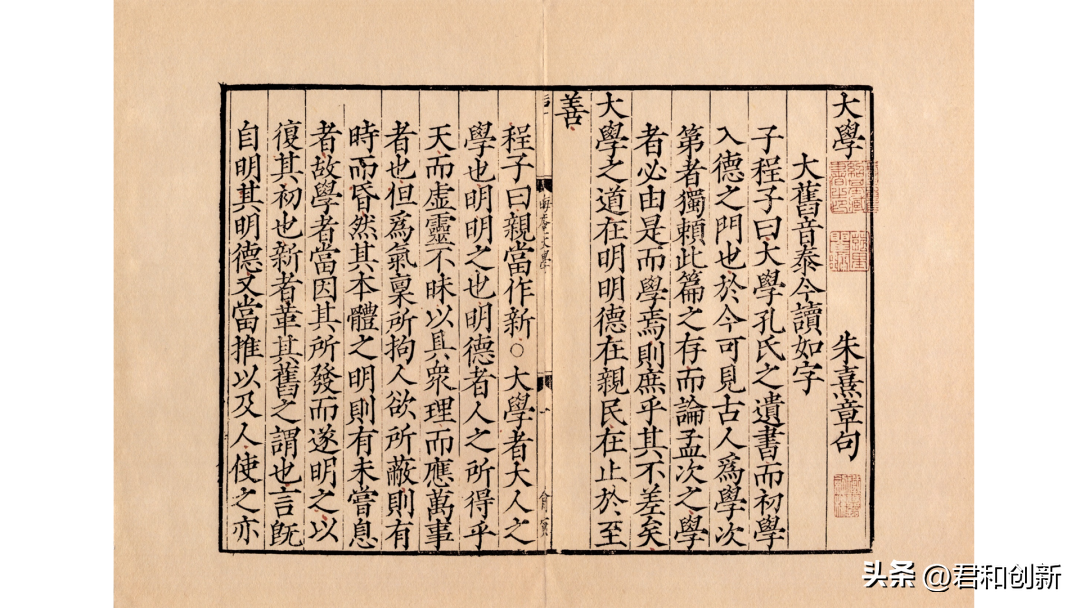 大學 朱熹章句
大舊音泰今讀如字
子程子曰大學孔氏之遺書而初學
入德之門也於今可見古人爲學次
第者獨頼此篇之存而論孟次之學
者必由是而學焉則庶乎其不差矣
大學之道在明明德在親民在止於至
善
程子曰親當作新○大學者大人之
學也明明之也明德者人之所得乎
天而虛靈不昧以具衆理而應萬事
者也但爲氣稟所拘人欲所蔽則有
時而昏然其本體之明則有未嘗息
者故學者當因其所發而遂明之以
復其初也新者革其舊之謂也言旣
自明其明德又當推以及人使之亦
头条 @君和创新